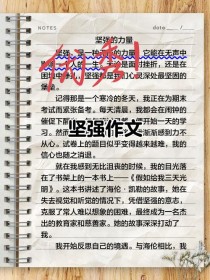 NOTES date / /
坚强的力量
坚强，是一种 的力量，它能在无声中
人的 面对挫折，还是在
困境中 坚强都是我们心灵深处最坚固的
堡垒。
优秀!
记得那是一个寒冷的冬天，我正在为期末
考试而紧张备考。每天清晨，我都会在闹钟的
催促下醒 开始一天的学
坚强作文
习。然而 渐渐感到力不
从心。试卷上的题目似乎变得越来越难，我的
信心也随之消退。
就在我感到无比沮丧的时候，我的目光落
在了书架上的一本书上——《假如给我三天光
明》。这本书讲述了海伦·凯勒的故事，她在
失去视觉和听觉的情况下，凭借坚强的意志，
克服了常人难以想象的困难，最终成为一名杰
出的教育家和慈善家。她的故事深深打动了
我。
我开始反思自己的境遇。与海伦相比，我